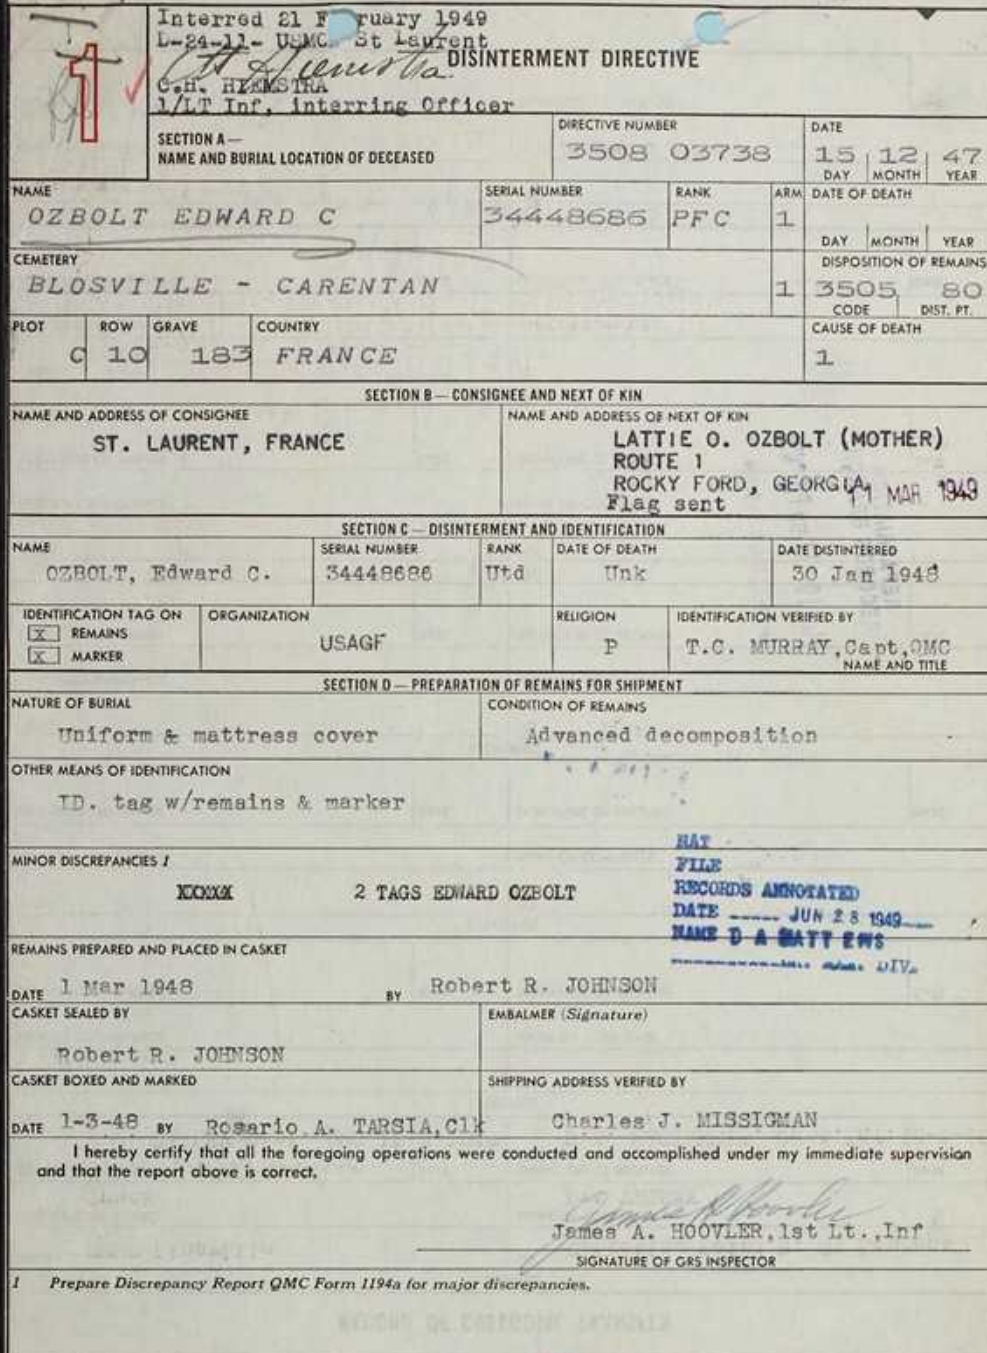 Interred 21 February 1949
L-24-11- USMC. St Laurent
DISINTERMENT DIRECTIVE
C.H. HIEMSTRA
1/LT Inf, interring Officer
1
SECTION A—
NAME AND BURIAL LOCATION OF DECEASED
DIRECTIVE NUMBER
3508 03738
DATE
15 12 47
DAY MONTH YEAR
NAME
OZBOLT EDWARD C
SERIAL NUMBER
34448686
RANK
PFC
ARM
1
DATE OF DEATH
DAY MONTH YEAR
CEMETERY
BLOSVILLE - CARENTAN
1
DISPOSITION OF REMAINS
3505 80
CODE DIST. PT.
PLOT ROW GRAVE COUNTRY
C 10 183 FRANCE
CAUSE OF DEATH
1
SECTION B — CONSIGNEE AND NEXT OF KIN
NAME AND ADDRESS OF CONSIGNEE
ST. LAURENT, FRANCE
NAME AND ADDRESS OF NEXT OF KIN
LATTIE O. OZBOLT (MOTHER)
ROUTE 1
ROCKY FORD, GEORGIA
Flag sent
MAR 1949
SECTION C — DISINTERMENT AND IDENTIFICATION
NAME
OZBOLT, Edward C.
SERIAL NUMBER
34448686
RANK
Utd
DATE OF DEATH
Unk
DATE DISTINTERRED
30 Jan 1948
IDENTIFICATION TAG ON
X REMAINS
X MARKER
ORGANIZATION
USAGF
RELIGION
P
IDENTIFICATION VERIFIED BY
T.C. MURRAY,Capt,QMC
NAME AND TITLE
SECTION D — PREPARATION OF REMAINS FOR SHIPMENT
NATURE OF BURIAL
Uniform & mattress cover
CONDITION OF REMAINS
Advanced decomposition
OTHER MEANS OF IDENTIFICATION
ID. tag w/remains & marker
MINOR DISCREPANCIES 1
XXXXX 2 TAGS EDWARD OZBOLT
FILE
RECORDS ANNOTATED
DATE ..... JUN 28 1949
NAME D A MATTEWS
DIV.
REMAINS PREPARED AND PLACED IN CASKET
DATE 1 Mar 1948 BY Robert R. JOHNSON
CASKET SEALED BY
Robert R. JOHNSON
EMBALMER (Signature)
CASKET BOXED AND MARKED
DATE 1-3-48 BY Rosario A. TARSIA,Clk
SHIPPING ADDRESS VERIFIED BY
Charles J. MISSIGMAN
I hereby certify that all the foregoing operations were conducted and accomplished under my immediate supervision
and that the report above is correct.
James A. HOOVLER,1st Lt.,Inf
SIGNATURE OF GRS INSPECTOR
1 Prepare Discrepancy Report QMC Form 1194a for major discrepancies.